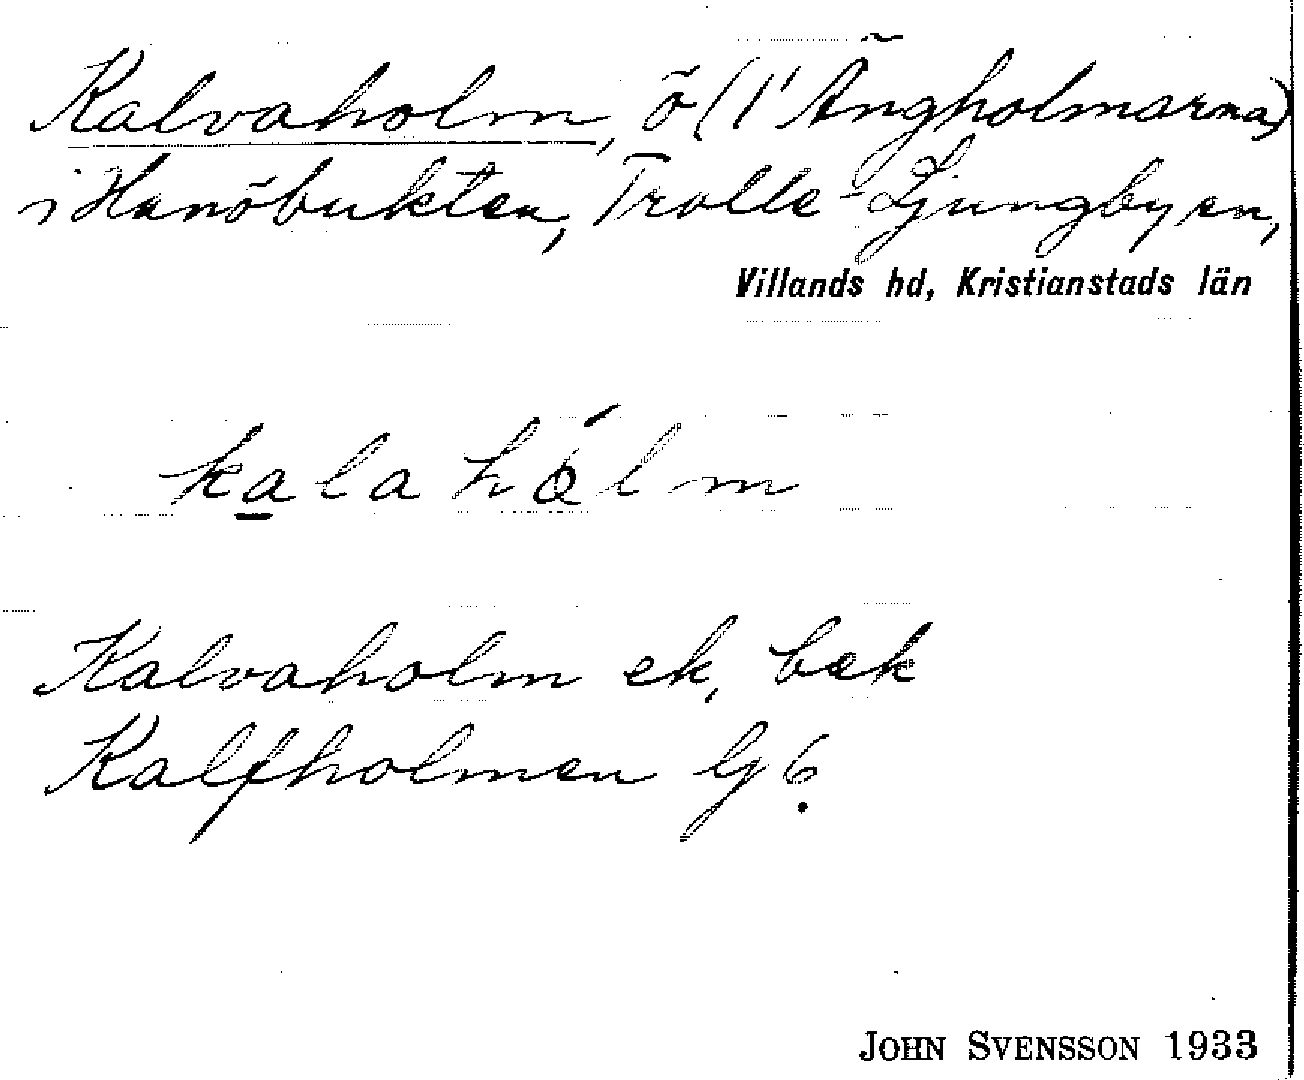 Kalvaholm, ö (i Ängholmarna)
i Hanöbukten, Trolle-Ljungby sn,
Villands hd, Kristianstads län
kalahólm
Kalvaholm ek, bek
Kalfholmen G6.
JOHN SVENSSON 1933